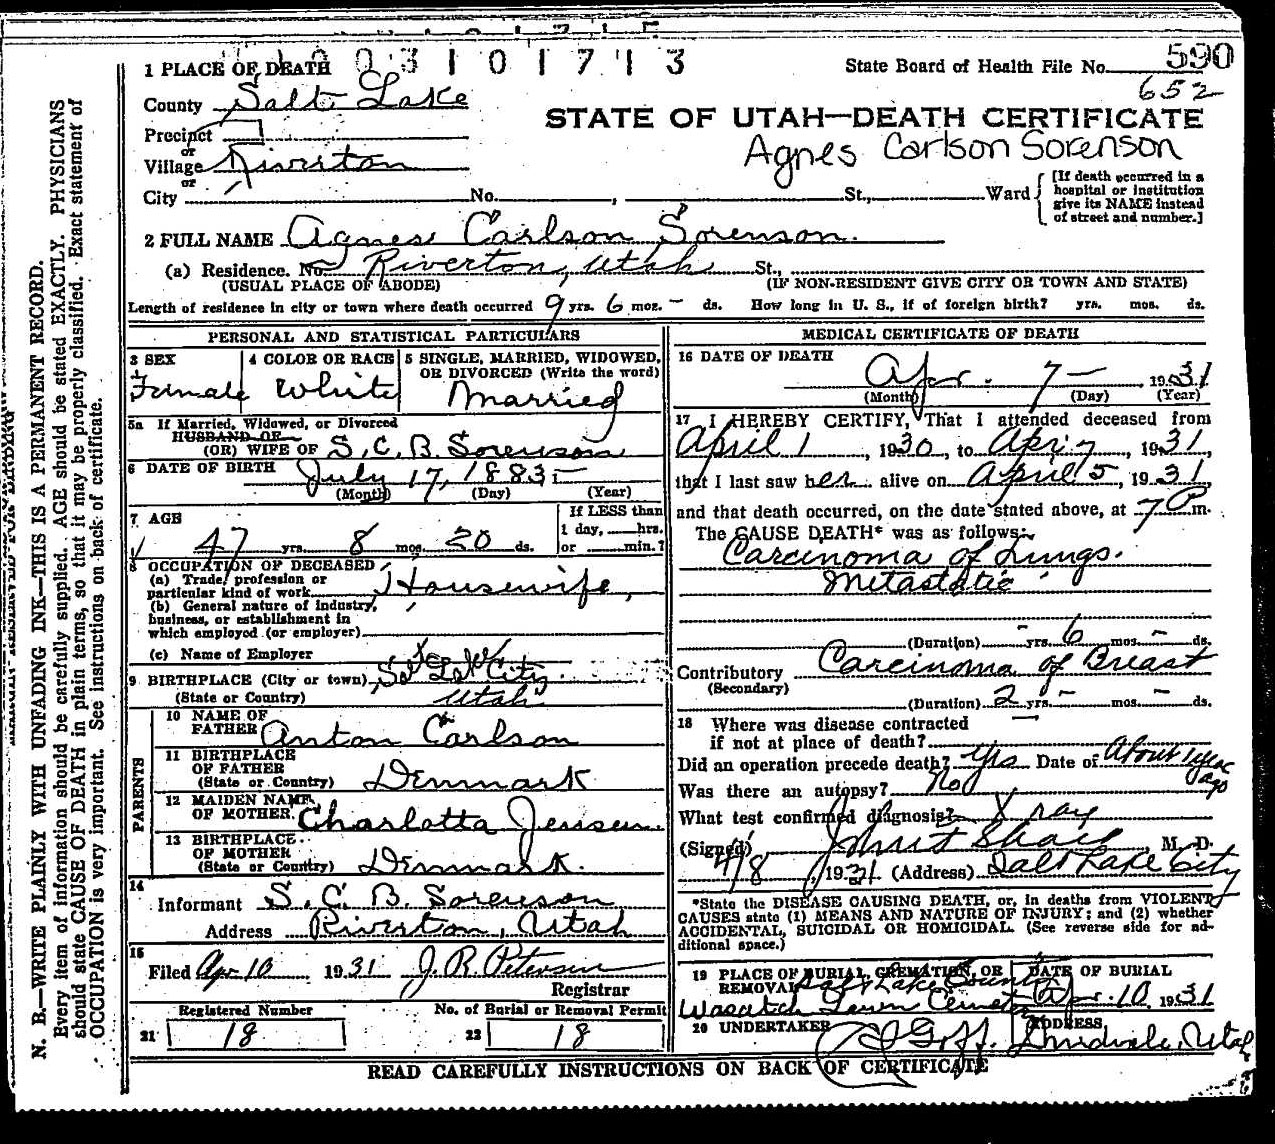 003101713
1 PLACE OF DEATH
State Board of Health File No. 590
652
County Salt Lake
STATE OF UTAH—DEATH CERTIFICATE
Agnes Carlson Sorenson
Precinct
or
Village Riverton
or
City No. , St., Ward
[If death occurred in a
hospital or institution
give its NAME instead
of street and number.]
2 FULL NAME Agnes Carlson Sorenson.
(a) Residence. No. Riverton, Utah St.,
(USUAL PLACE OF ABODE) (IF NON-RESIDENT GIVE CITY OR TOWN AND STATE)
Length of residence in city or town where death occurred 9 yrs. 6 mos. – ds. How long in U. S., if of foreign birth? yrs. mos. ds.
PERSONAL AND STATISTICAL PARTICULARS
3 SEX 4 COLOR OR RACE 5 SINGLE, MARRIED, WIDOWED,
OR DIVORCED (Write the word)
Female White Married
5a If Married, Widowed, or Divorced
HUSBAND OF
(OR) WIFE OF S. C. B. Sorenson
6 DATE OF BIRTH July 17, 1883 –
(Month) (Day) (Year)
7 AGE
If LESS than
1 day, hrs.
or min.?
47 yrs. 8 mos. 20 ds.
8 OCCUPATION OF DECEASED
(a) Trade, profession or
particular kind of work Housewife,
(b) General nature of industry,
business, or establishment in
which employed (or employer)
(c) Name of Employer
9 BIRTHPLACE (City or town) Salt Lake City
(State or Country) Utah
PARENTS
10 NAME OF
FATHER Anton Carlson
11 BIRTHPLACE
OF FATHER
(State or Country) Denmark
12 MAIDEN NAME
OF MOTHER Charlotta Jensen
13 BIRTHPLACE
OF MOTHER
(State or Country) Denmark.
14
Informant S. C. B. Sorenson
Address Riverton, Utah
15
Filed Apr 10 1931 J. R. Peterson
Registrar
Registered Number No. of Burial or Removal Permit
21 18 22 18
MEDICAL CERTIFICATE OF DEATH
16 DATE OF DEATH
Apr. 7 – , 1931
(Month) (Day) (Year)
17 I HEREBY CERTIFY, That I attended deceased from
April 1, 1930, to Apr 7, 1931,
that I last saw her alive on April 5, 1931,
and that death occurred, on the date stated above, at 7 P m.
The CAUSE DEATH* was as follows:
Carcinoma of Lungs.
Metastatic
(Duration) – yrs. 6 mos. – ds.
Contributory Carcinoma of Breast
(Secondary)
(Duration) 2 yrs. – mos. – ds.
18 Where was disease contracted
if not at place of death? —
Did an operation precede death? Yes Date of About 1 year
ago
Was there an autopsy? No
What test confirmed diagnosis? X ray
(Signed) M. D.
4/8, 1931 (Address) Salt Lake City
*State the DISEASE CAUSING DEATH, or, in deaths from VIOLENT
CAUSES state (1) MEANS AND NATURE OF INJURY; and (2) whether
ACCIDENTAL, SUICIDAL OR HOMICIDAL. (See reverse side for ad-
ditional space.)
19 PLACE OF BURIAL, CREMATION, OR
REMOVAL Salt Lake County
Wasatch Lawn Cemetery
DATE OF BURIAL
Apr. 10, 1931
20 UNDERTAKER Goff
ADDRESS
Midvale, Utah
READ CAREFULLY INSTRUCTIONS ON BACK OF CERTIFICATE
N. B.—WRITE PLAINLY WITH UNFADING INK—THIS IS A PERMANENT RECORD.
Every item of information should be carefully supplied. AGE should be stated EXACTLY. PHYSICIANS
should state CAUSE OF DEATH in plain terms, so that it may be properly classified. Exact statement of
OCCUPATION is very important. See instructions on back of certificate.